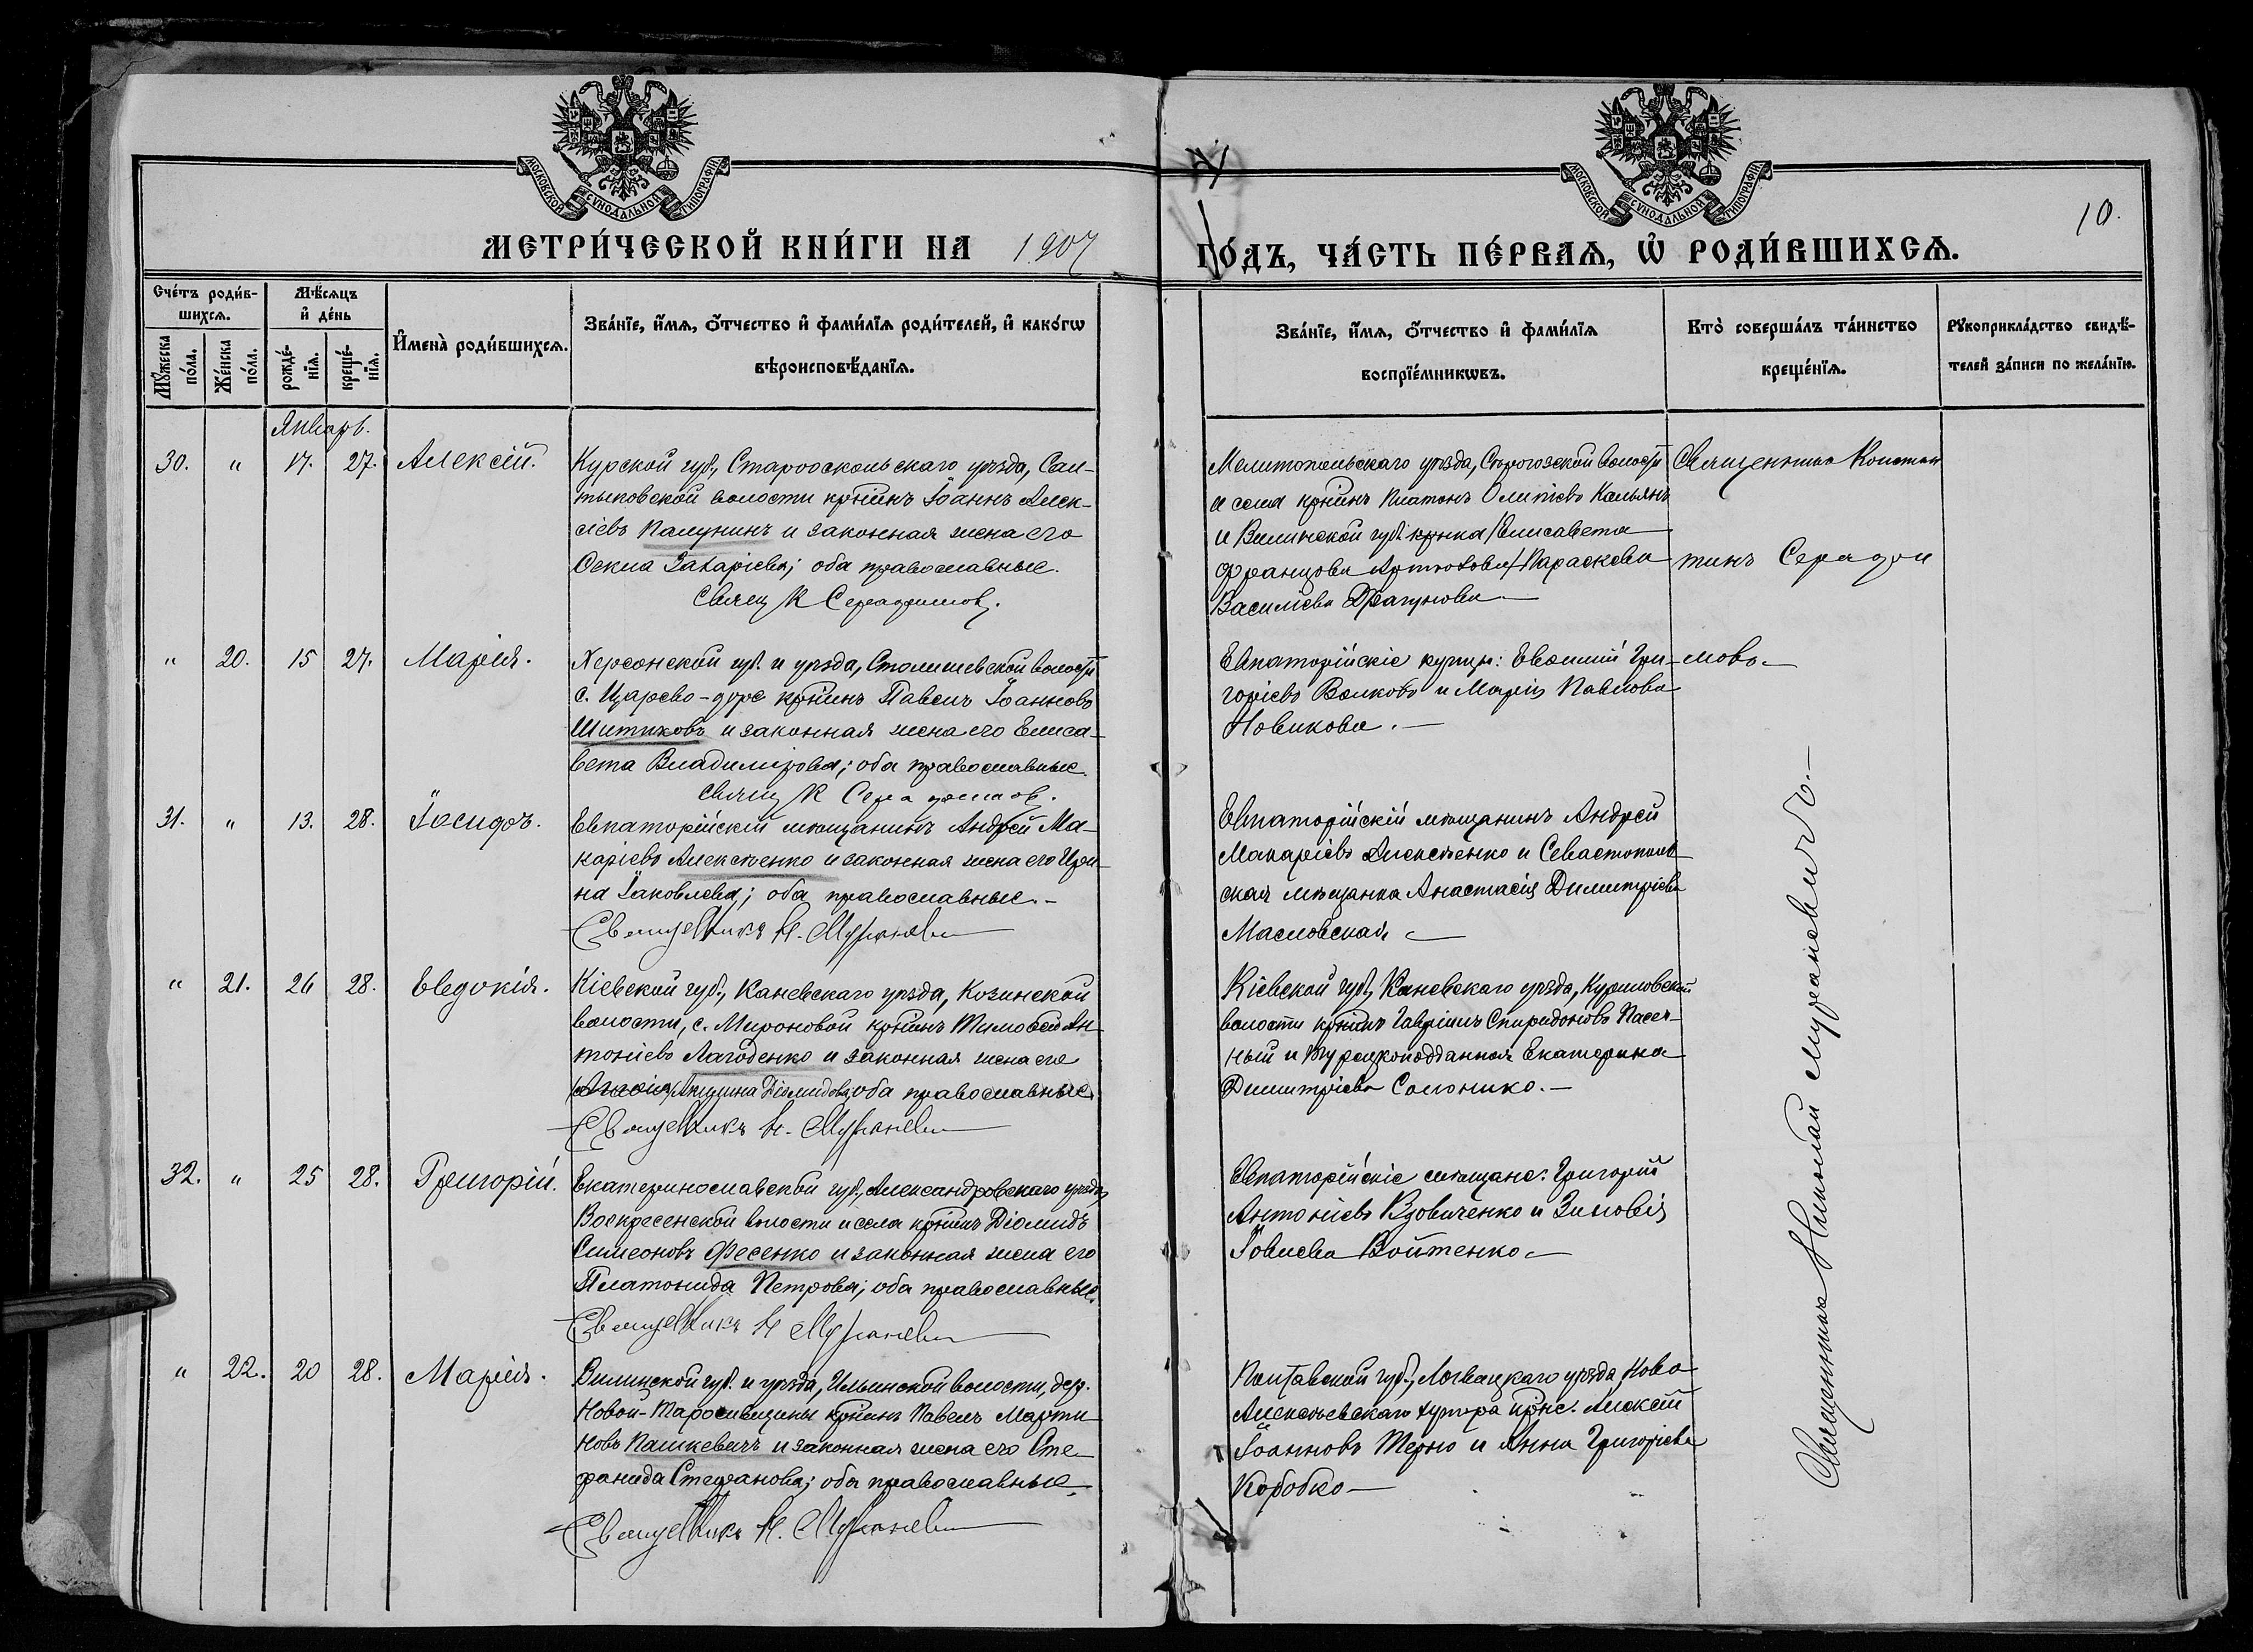 МОСКОВСКОЙ СѴНОДАЛЬНОЙ ТИПОГРАФІИ
МОСКОВСКОЙ СѴНОДАЛЬНОЙ ТИПОГРАФІИ
10.
МЕТРИ́ЧЕСКОЙ КНИ́ГИ НА 1907 ГО́ДЪ, ЧА́СТЬ ПЕ́РВАѦ, Ѡ҆ РОДИ́ВШИХСѦ.
Сче́тъ роди́в-
шихсѧ.
Мꙋ́жеска по́ла.
Же́нска по́ла.
Мѣ́сѧцъ
и҆ де́нь
рожде́-
нїѧ.
креще́-
нїѧ.
И҆мена̀ роди́вшихсѧ.
Зва́нїе, и҆́мѧ, ѻ҆́тчество и҆ фами́лїѧ роди́телей, и҆ како́гѡ
вѣроисповѣ́данїѧ.
Зва́нїе, и҆́мѧ, ѻ҆́тчество и҆ фами́лїѧ
воспрїе́мникѡвъ.
Кто̀ соверша́лъ та́инство
креще́нїѧ.
Рꙋкоприкла́дство свидѣ́-
телей за́писи по жела́нїю.
Январь.
30. " 17. 27. Алексій.
Курской губ., Старооскольскаго уѣзда, Сал-
тыковской волости кр҃нинъ Іоаннъ Алек-
сіевъ Палунинъ и законная жена его
Ѳекла Захаріева; оба православные.
Свящ. К Серафимов.
Мелитопольскаго уѣзда, волости
и села кр҃нинъ Платонъ Олипіевъ
и Виленской губ. кр҃нка /Елисавета
Францова / Параскева
Василіева Драгунова
Священникъ Констан
тинъ Серафи
мовъ
" 20. 15 27. Марія.
Херсонской губ. и уѣзда, волости
с. Царево- кр҃нинъ Павелъ Іоанновъ
Шитиковъ и законная жена его Елиса-
вета Владимірова; оба православные.
Свящ. К Серафимов.
Евпаторійскіе купцы: Евѳимій Гри-
горіевъ Волковъ и Марія Павлова
Новикова.
31. " 13. 28. Іосифъ.
Евпаторійскій мѣщанинъ Андрей Ма-
каріевъ Алексѣенко и законная жена его Ири-
на Іаковлева; оба православные.
Священникъ Н. Мураневи
Евпаторійскій мѣщанинъ Андрей
Макаріевъ Алексѣенко и Севастополь
ская мѣщанка Анастасія Димитріева
Масловская
" 21. 26 28. Евдокія.
Кіевской губ., Каневскаго уѣзда, Козинской
волости, с. Мироновой кр҃нинъ Тимоѳей Ан-
тоніевъ Лагоденко и законная жена его
Акилина Діомидова, оба православные.
Священникъ Н. Мураневи
Кіевской губ., Каневскаго уѣзда, Куриловской
волости кр҃нинъ Гавріилъ Спиридоновъ Пасеч-
ный и Турецкоподданная Екатерина
Димитріева Солонико.
32. " 25 28. Григорій.
Екатеринославской губ., Александровскаго уѣзда,
Воскресенской волости и села кр҃нинъ Діомидъ
Симеоновъ Фесенко и законная жена его
Платонида Петрова; оба православные.
Священникъ Н Мураневи
Евпаторійскіе мѣщане: Григорій
Антоніевъ Вдовиченко и Зиновія
Іовлева Войтенко
" 22. 20 28. Марія.
Виленской губ. и уѣзда, Ильинской волости, дер.
Новой- кр҃нинъ Павелъ Марти
новъ Пашкевичъ и законная жена его Сте
фанида Стефанова; оба православные
Священникъ Н. Мураневи
Полтавской губ., Лохвицкаго уѣзда, Ново
Алексѣевскаго хутора кр҃не: Алексій
Іоанновъ Терно и Анна Григоріева
Коробко
Священникъ Николай Мураневичъ.